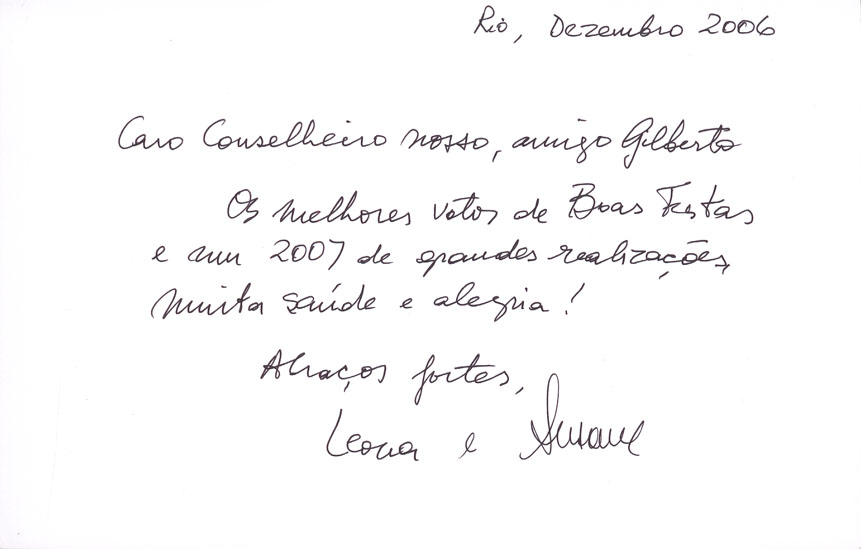 Rio, Dezembro 2006
Caro Conselheiro nosso, amigo Gilberto
Os melhores votos de Boas Festas
e um 2007 de grandes realizações,
muita saúde e alegria!
Abraços fortes,
e